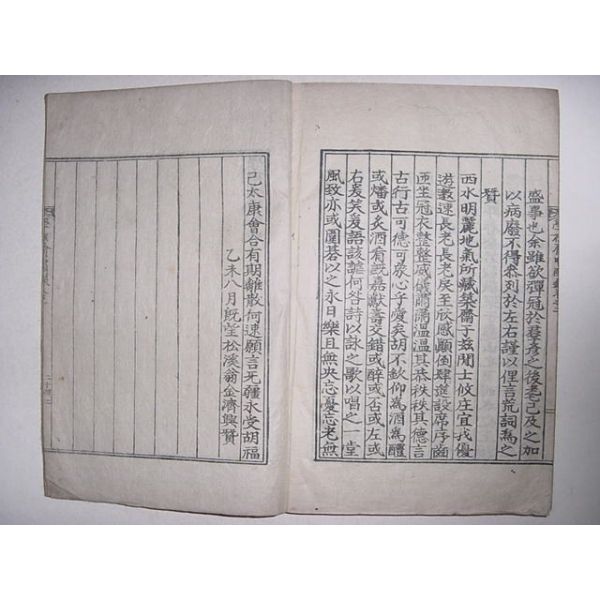 盛事也余雖欲彈冠於羣彦之後耄已及之加
以病廢不得叅列於左右謹以俚言荒詞爲之
贊
西水明麗地氣所藏築齋于玆閒士攸庄宜我優
遊數速長老長老戾至欣感顚倒肆筵設席序齒
而坐冠衣整整威儀肅肅溫溫其恭秩秩其德言
古行古可德可衆心乎愛矣胡不欽仰爲酒爲醴
或燔或炙酒有旣嘉獻壽交錯或醉或否或左或
右爰笑爰語該謔何咎詩以詠之歌以唱之一堂
風致亦或圍碁以之永日樂且無央忘憂忘老無
已太康會合有期離散何速願言无疆永受胡福
乙未八月旣望松溪翁金濟興贊